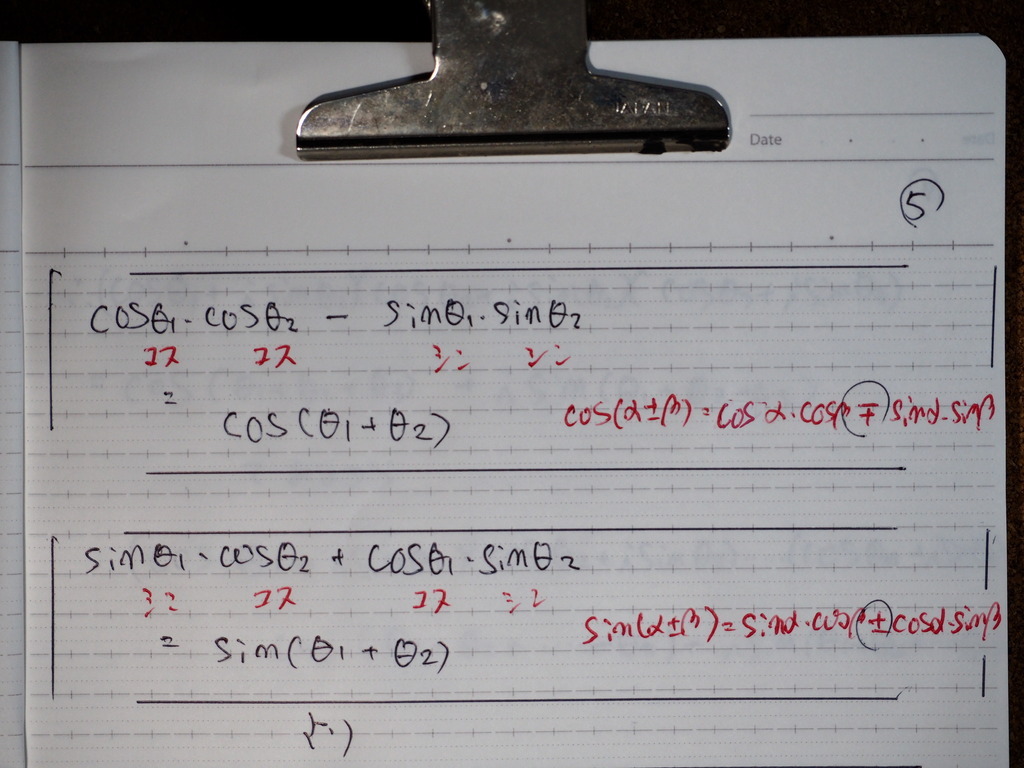 JAPAN
Date
5
cosθ1・cosθ2 − sinθ1・sinθ2
コス コス シン シン
= cos(θ1+θ2)
cos(α±β)=cosα・cosβ∓sinα・sinβ
sinθ1・cosθ2 + cosθ1・sinθ2
シン コス コス シン
= sin(θ1+θ2)
sin(α±β)=sinα・cosβ±cosα・sinβ